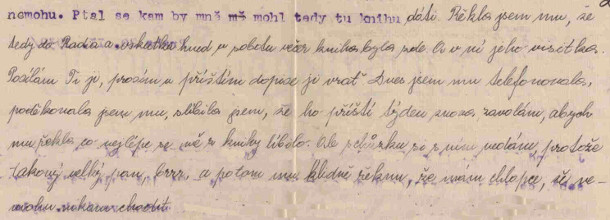 nemohu. Ptal se kam by mně mě mohl tedy tu knihu dáti. Řekla jsem mu, že
tedy do Radia a hned v sobotu večer kniha byla zde. A v ní jeho visitka.
Posílám Ti ji, prosím v příštím dopise ji vrať. Dnes jsem mu telefonovala,
poděkovala jsem mu, slíbila jsem, že ho příští týden znova zavolám, abych
mu řekla co nejlépe se mě z knihy líbilo. Ale schůzku si s ním nedám, protože
takový velký pan, brrr, a potom mu klidně řeknu, že mám chlopce, že ne-
mohu nikam choditi.